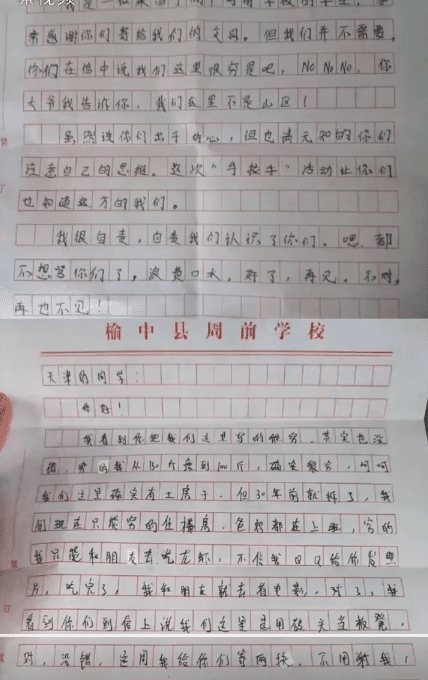 常感谢你们寄给我们的文具。但我们并不需要，
你们在信中说我们这里很穷是吧，NONONO，你
大爷我告诉你，我们这里不是山区！
虽然说你们出于好心，但也请无知的你们
注意自己的思维。这次“手拉手”活动让你们
也知道远方的我们。
我很自责，自责我们认识了你们。嗯，都
不想骂你们了，浪费口水，好了，再见。不对，
再也不见！
榆中县周前学校
天津的同学：
你好！
我看到你把我们这里写的很穷，其实也没
错，穷的我从130斤瘦到100斤，确实很穷，呵呵
我们这里确实有土房子，但30年前就拆了，我
们现在只能穷的住楼房，危房都连上
，穷的
我只能和朋友去吃龙虾，不信我QQ给你发照
片，吃完了，我和朋友就去看电影。对了，我
看到你们到信上说我们这里是用破
当板凳，
对，没错，这周我给你们寄两块，不用谢我！